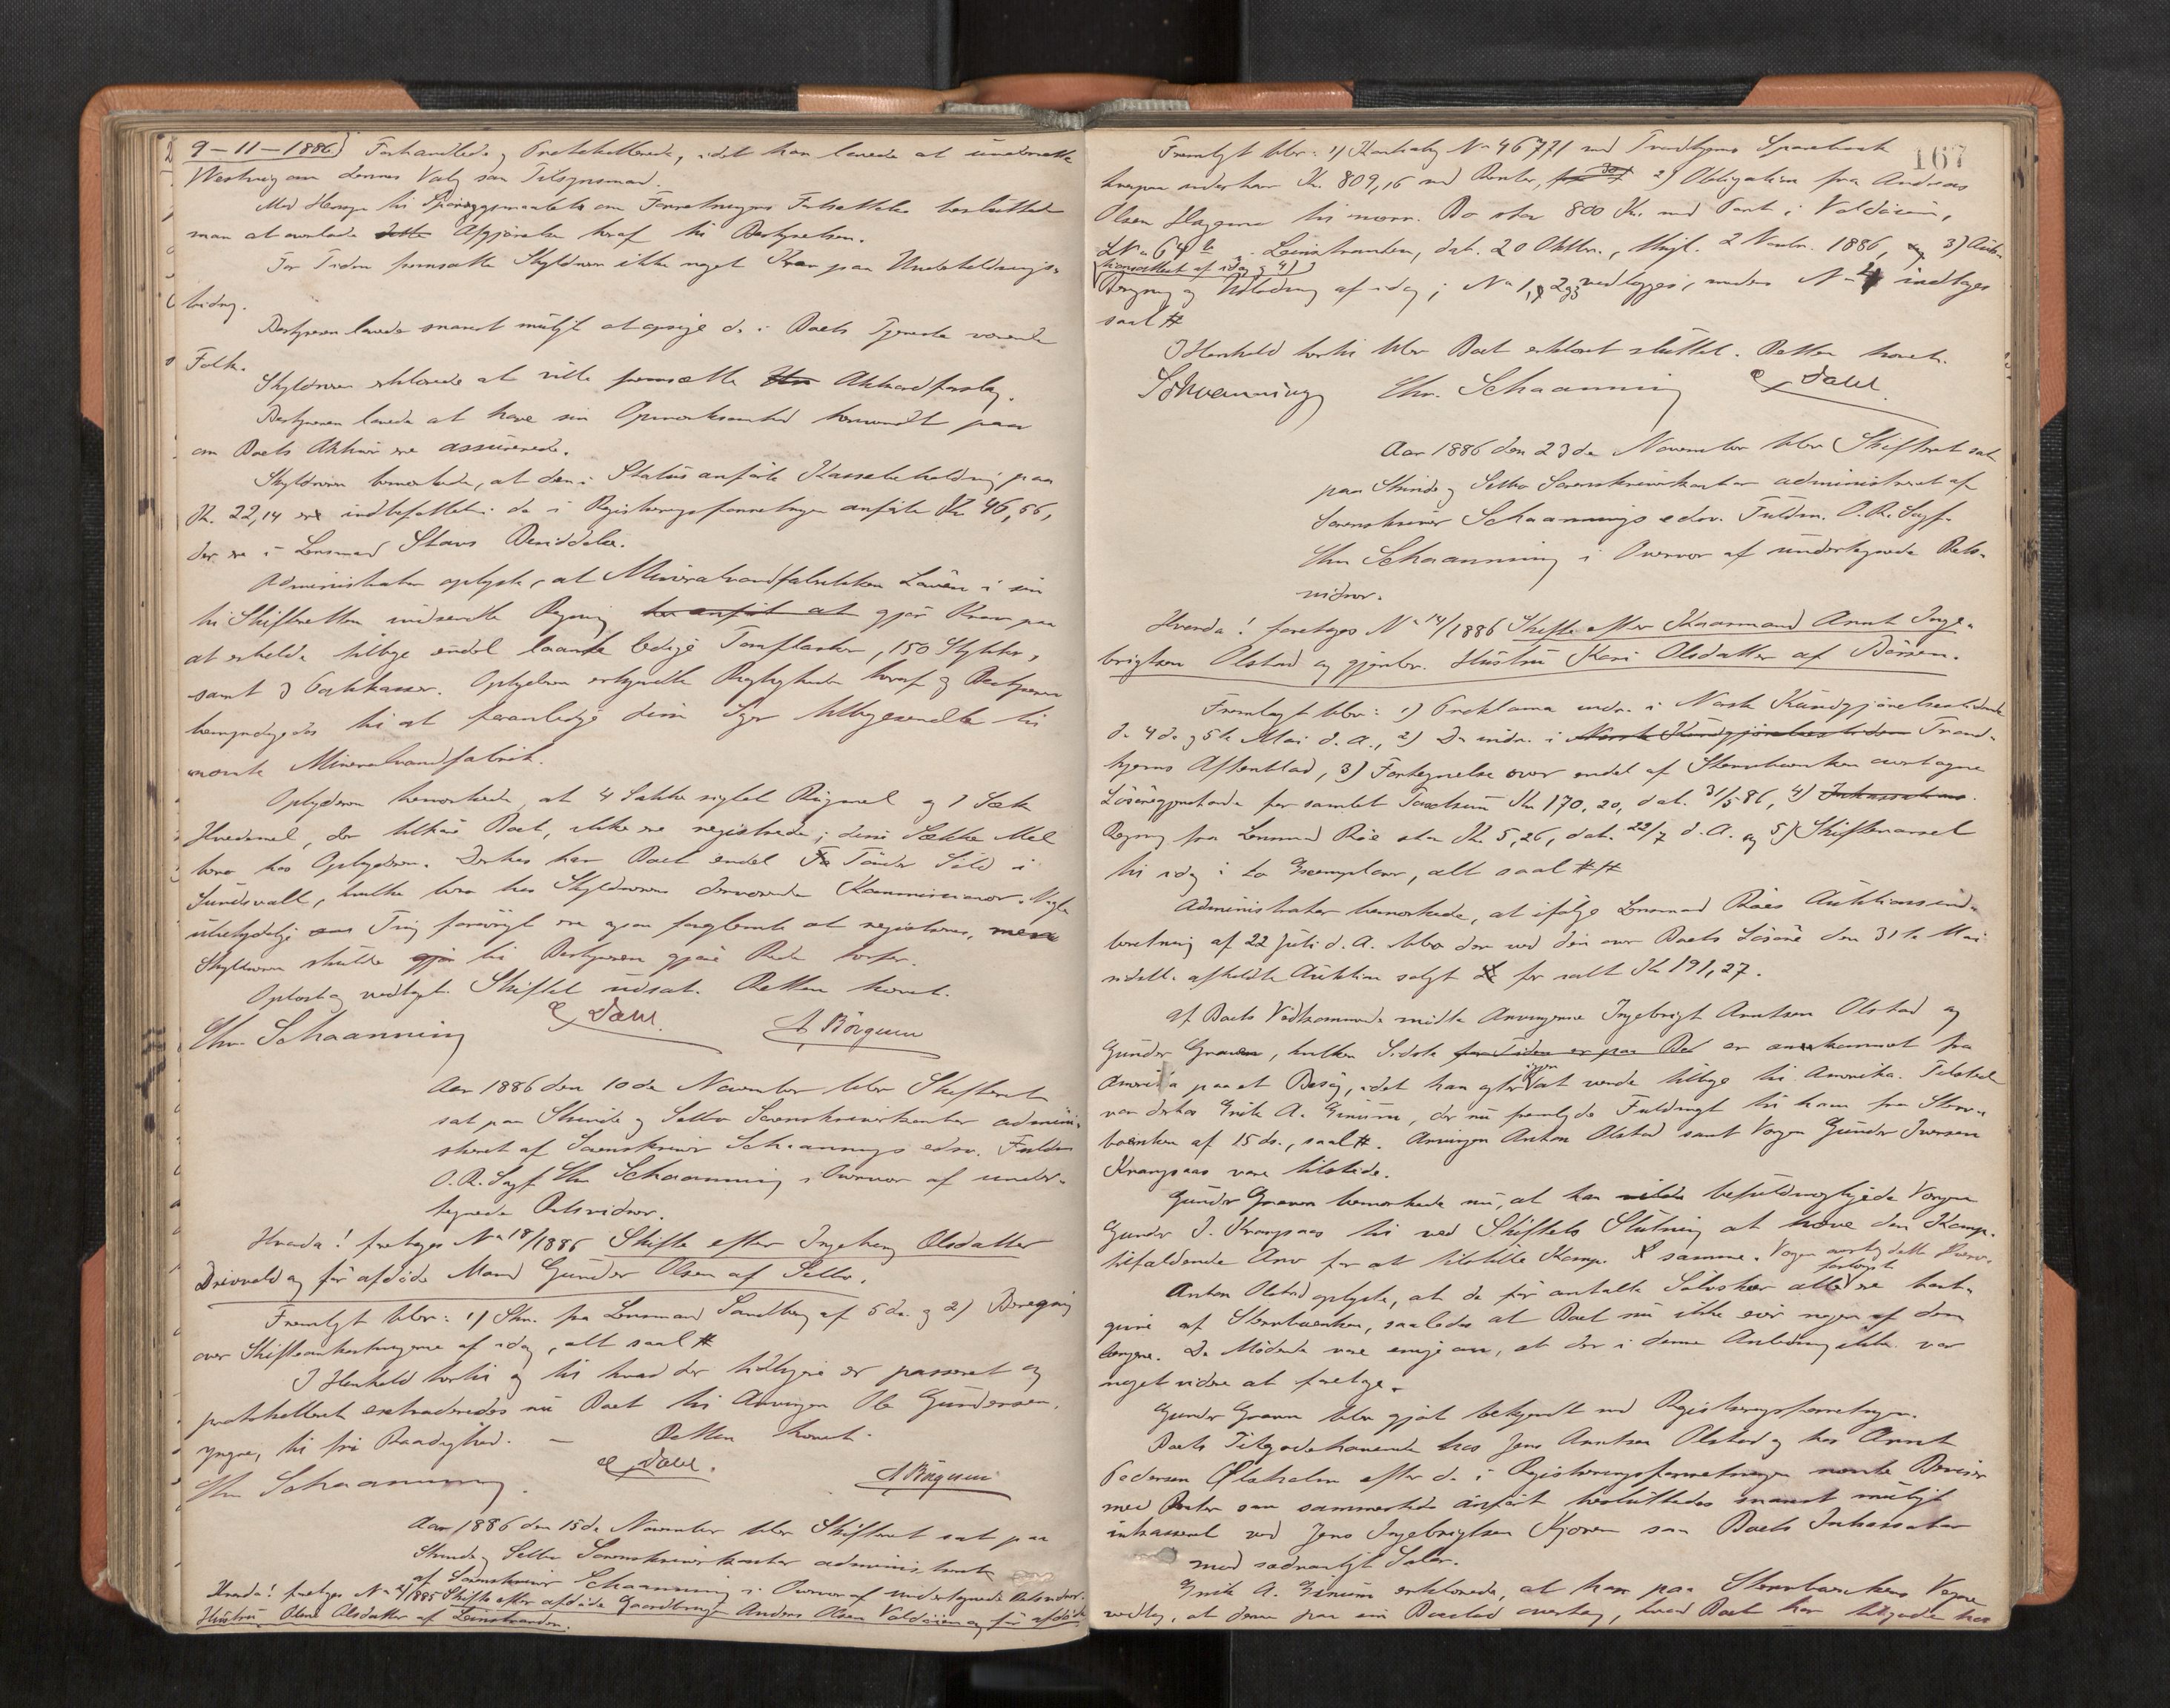 9-11-1886) Forhandlede og Protokollerede, idet han lovede at underrette
Westrvig om dennes Valg som Tilsynsmand.
Med Hensyn til Spørgsmaalet om Forretningens Fortsættelse besluttede
man at overlade Afgjørelse heraf til Bestyrelsen.
For Tiden fremsatte Skyldneren ikke noget Krav paa Underholdnings-
bidrag.
Bestyreren lovede snarest muligt at opsige de i Boets Tjeneste værende
Folk.
Skyldneren erklærede at ville fremsætte Akkordforslag.
Bestyreren lovede at have sin Opmærksomhed henvendt paa
om Boets Aktiver ere assurerede.
Skyldneren bemærkede, at den i Status anførte Kassebeholdning paa
Kr. 22,14 er indbefattet i de i Registreringsforretningen anførte Kr 46,56,
der er i Lensmand Stavs Besiddelse.
Administrator oplyste, at Mineralvandfabrikken Laven i sin
til Skifteretten indsendte Regning gjør Krav paa
at erholde tilbage endel laante ledige Tomflasker, 150 Stykker,
samt 3 Pakkasser. Opbyderen erkjendte Rigtigheden heraf og Bestyreren
bemyndigedes til at foranledige disse Sager tilbagesendte til
nævnte Mineralvandfabrik.
Opbyderen bemærkede at 4 Sække sigtet Rugmel og 1 Sæk
Hvedemel, der tilhøre Boet, ikke ere registrerede; disse Sække Mel
bero hos Opbyderen. Derhos har Boet endel Tønder Sild i
Sundsvall, hvilke bero hos Skyldnerens derværende Kommissionær. Nogle
ubetydelige Ting forøvrigt ere ogsaa forglemte at registreres, men
Skyldneren skulde til Bestyreren gjøre Rede herfor.
Oplæst og vedtaget. Skiftet udsat. Retten hævet.
Chr. Schaanning E Dahl. A Börgum
Aar 1886 den 10de November blev Skifteret
sat paa Strinde og Selbo Sorenskriverkontor admini-
streret af Sorenskriver Schaannings edsv. Fuldm
O.R.Sagf. Chr Schaanning i Overvær af under-
tegnede Retsvidner.
Hvorda! foretages No 18/1886 Skifte efter Ingeborg Olsdatter
Drivvold og før afdøde Mand Gunder Olsen af Selbo.
Fremlagt blev: 1) Skr. fra Lensmand Sandberg af 5 ds. og 2) Beregning
over Skifteomkostningerne af idag, alt saal #
I Henhold hertil og til hvad der tidligere er passeret og
protokolleret extraderedes nu Boet til Arvingen Ole Gundersen,
yngre, til fri Raadighed. — Retten hævet.
Chr Schaanning. E Dahl. A Börgum
Aar 1886 den 15de November blev Skifteret sat paa
Strinde og Selbo Sorenskriverkontor administreret
af Sorenskriver Schaanning i Overvær af undertegnede Retsvidner.
Hvorda! foretages No 2/1885 Skifte efter afdøde Gaardbruger Anders Olsen Valdøien og før afdøde
Hustru Olene Olsdatter af Leinstranden.
167
Fremlagt blev: 1) Kontrabog No 46771 med Trondhjems Sparebank
hvorpaa inderhaves Kr. 809,16 med Renter, 2) Obligation fra Andreas
Olsen Haggen til nærv. Bo stor 800 Kr. med Pant i Valdøien,
LNo 64 b Leinstranden, dat. 20 Oktbr., thgl. 2 Novbr. 1886, 3) Auk-
tionsattest af idag og 4)
Beregning og Udlodning af idag; No 1, 2 og 3 vedlægges, medens No 4 indtages
saal #
I Henhold hertil blev Boet erklæret sluttet. Retten hævet.
Schaanning Chr. Schaanning E Dahl.
Aar 1886 den 23de November blev Skifteret sat
paa Strinde og Selbo Sorenskriverkontor administreret af
Sorenskriver Schaannings edsv. Fuldm. O.R.Sagf.
Chr Schaanning i Overvær af undertegnede Rets-
vidner.
Hvorda! foretages No 14/1886 Skifte efter Kaarmand Arnt Inge-
brigtsen Olstad og gjenlev. Hustru Kari Olsdatter af Börsen.
Fremlagt blev: 1) Proklama indr. i Norsk Kundgjørelsestidende
de 4de og 5te Mai d. A., 2) Do indr. i Norsk Kundgjørelsestidende Trond-
hjems Aftenblad, 3) Fortegnelse over endel af Stervboenken overtagne
Løsøregjenstande for samlet Taxtsum Kr 170,20, dat. 31/5 86, 4)
Regning fra Lensmand Röe stor Kr 5,26, dat. 22/7 d.A. og 5) Skiftevarsel
til idag i to Exemplarer, alt saal ##
Administrator bemærkede, at ifølge Lensmand Röes Auktionsind-
beretning af 22 Juli d. A. blev der ved den over Boets Løsøre den 31te Mai
sidstl. afholdte Auktion solgt for ialt Kr 191,27.
Af Boets Vedkommende mødte Arvingerne Ingebrigt Arntsen Olstad og
Gunder Graven, hvilken Sidste for Tiden er paa Be er ankommet fra
Amerika paa et Besøg, idet han agter igjen at vende tilbage til Amerika. Tilstede
var derhos Erik A. Gimum, der nu fremlagde Fuldmagt til ham fra Sterv-
boenken af 15 ds., saal #. Arvingen Anton Olstad samt Vergen Gunder Iversen
Krangsaas vare tilstede.
Gunder Graven bemærkede nu, at han befuldmægtigede Vergen
Gunder I. Krangsaas til ved Skiftets Slutning at hæve den Komp.
tilfaldende Arv for at tilstille Komp. samme. Vergen overtog dette Hverv.
Anton Olstad oplyste, at de før omtalte Sølvskeer alle forlængst ere bort-
givne af Stervboenken, saaledes at Boet nu ikke eier nogen af dem
længere. De Mødende vare enige om, at der i denne Anledning ikke var
noget videre at foretage.
Gunder Graven blev gjort bekjendt med Registreringsforretningen.
Boets Tilgodehavende hos Jens Arntsen Olstad og hos Arnt
Pedersen Ølsholm efter de i Registreringsforretningen nævnte Beviser
med Renter som sammesteds anført besluttedes snarest muligt
inkasseret ved Jens Ingebrigtsen Kjøren som Boets Inkassator
mod sædvanligt Salær.
Erik A. Gimum erklærede, at han paa Stervboenkens Vegne
vedtog, at denne paa sin Boeslod overtog, hvad Boet har tilgode hos